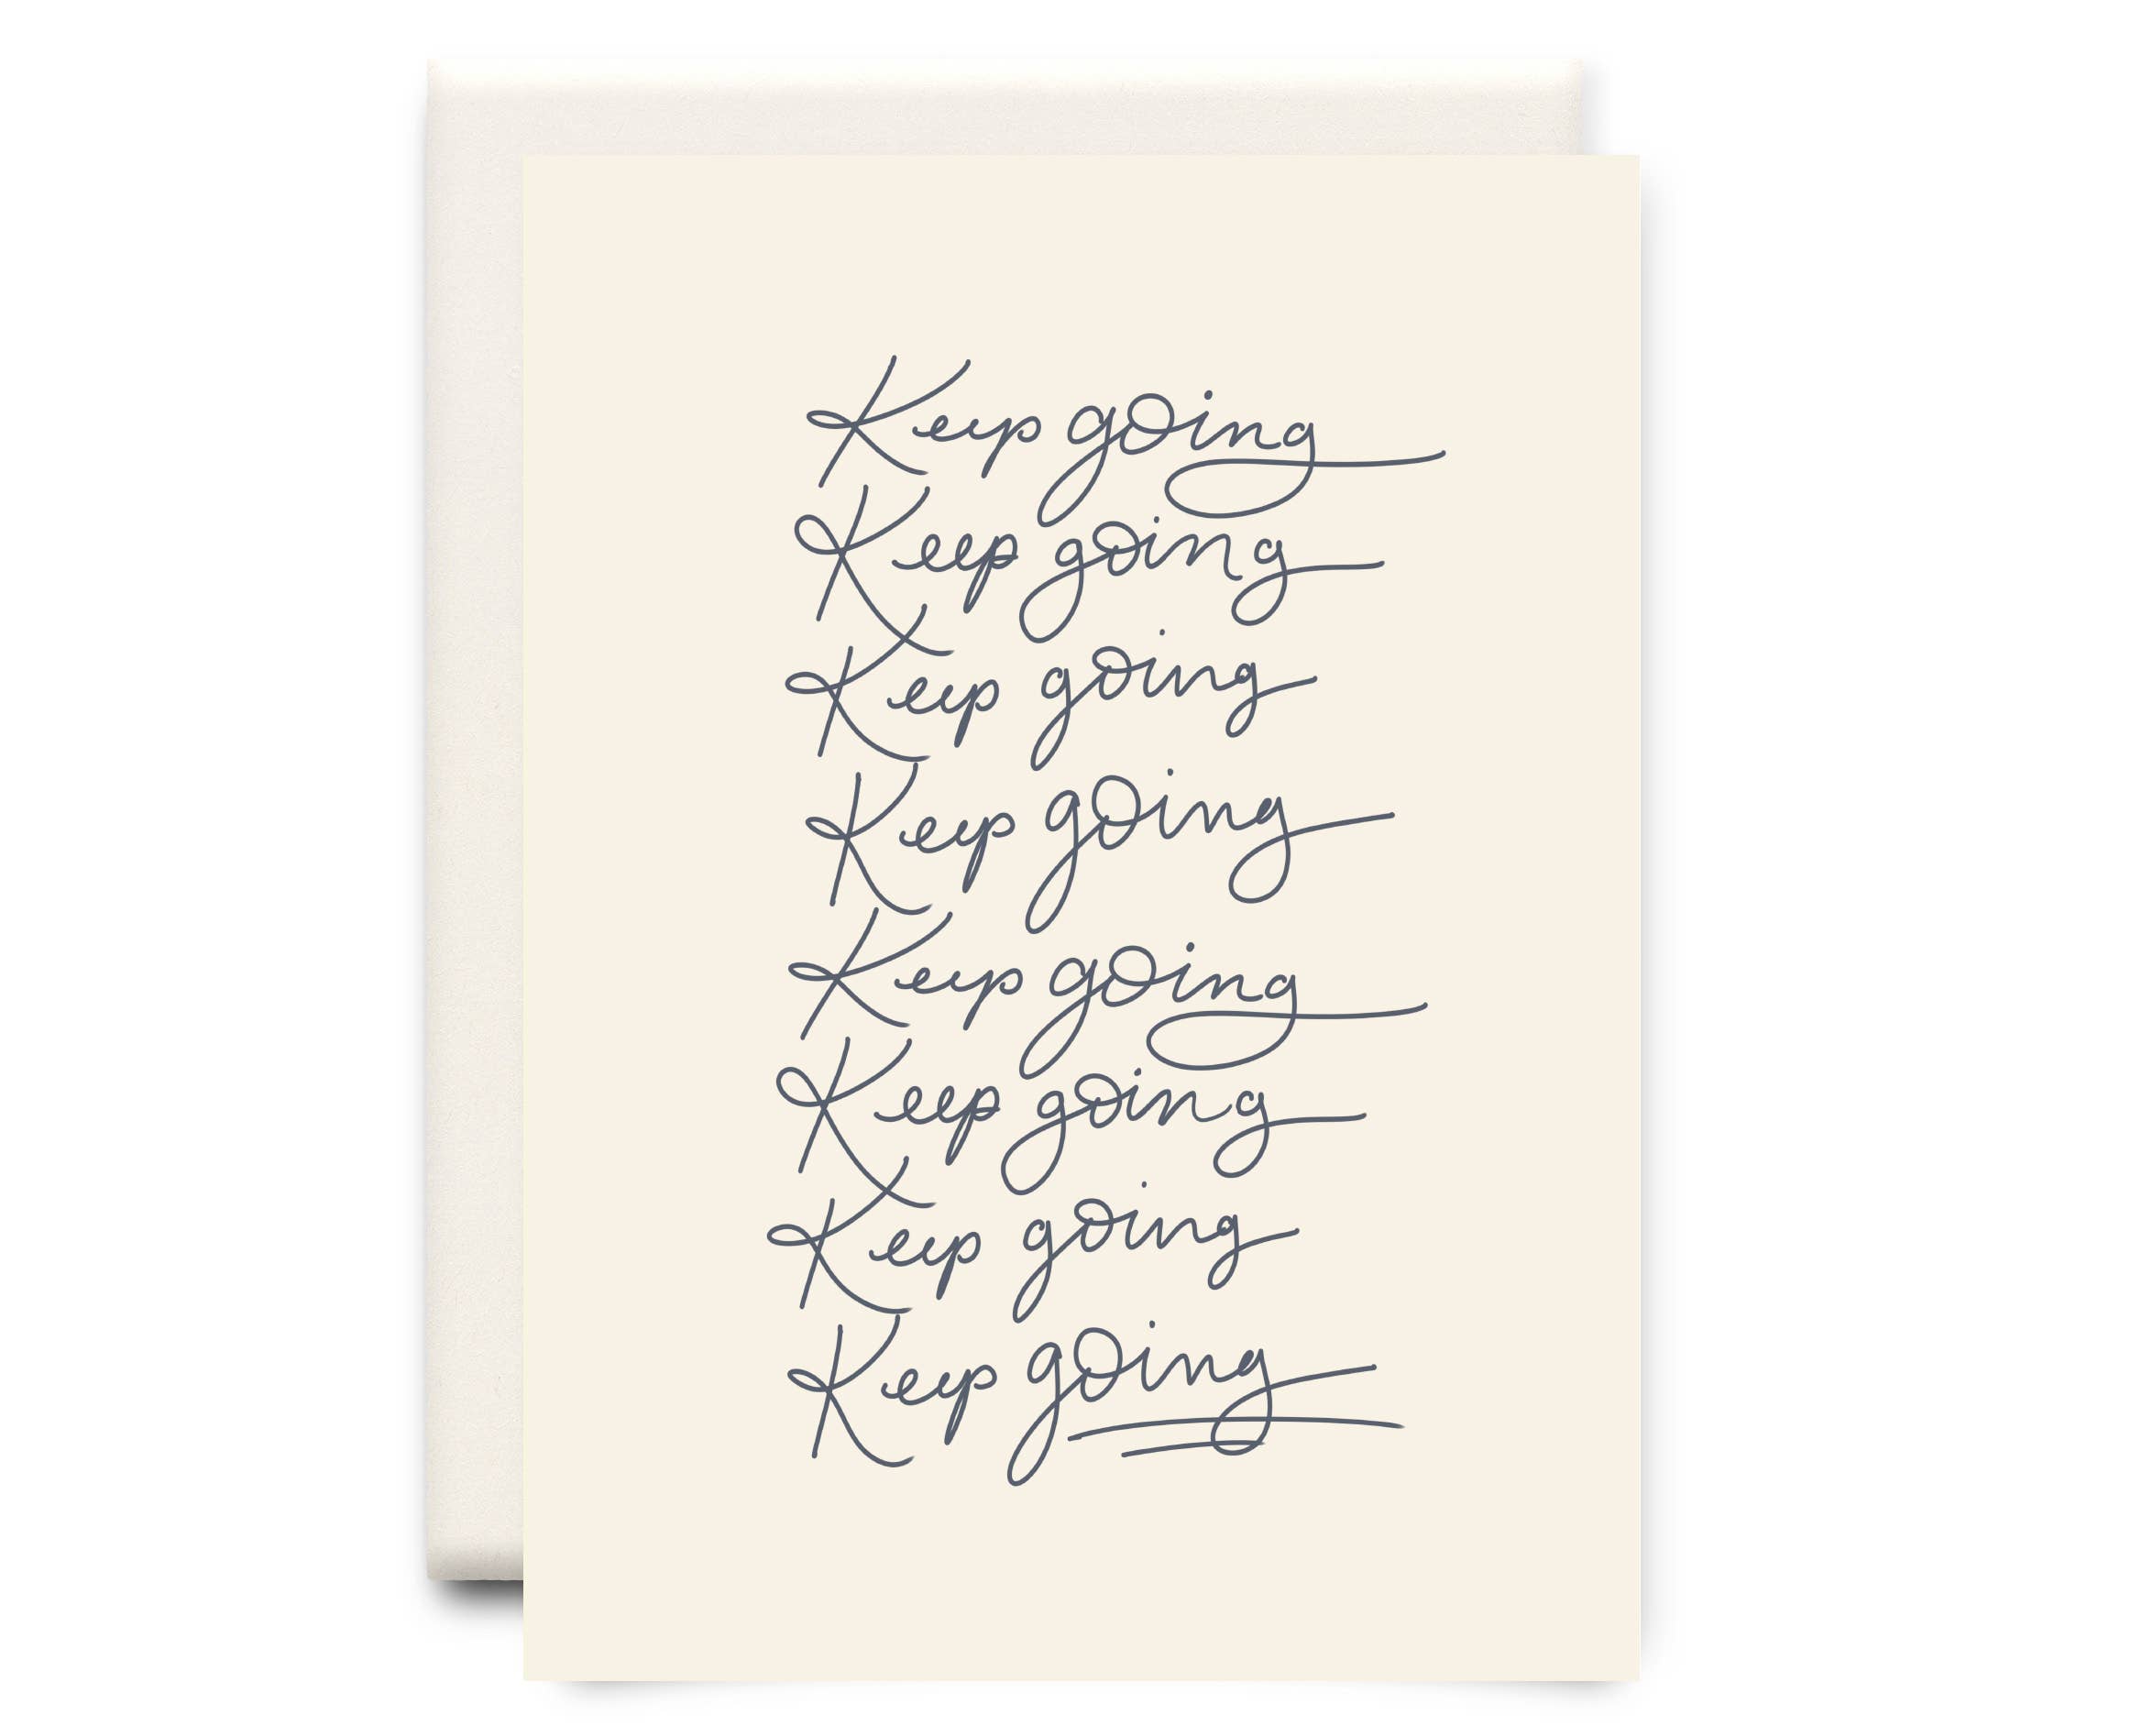 Keep going
Keep going
Keep going
Keep going
Keep going
Keep going
Keep going
Keep going